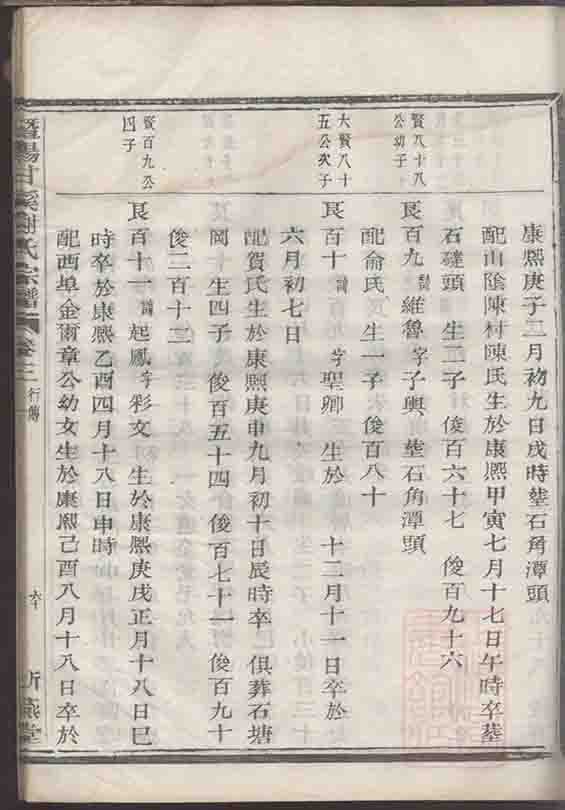 康熙庚子二月初九日戌時塟石角潭頭
配山陰陳村陳氏生於康熙甲寅七月十七日午時卒塟
石礳頭 生二子 俊百六十七 俊百九十六
賢八十八
公幼子
良百九 諱維魯 字子輿 塟石角潭頭
配俞氏 生一子 俊百八十
大賢八十
五公次子
良百十 諱 字聖卿 生於 十二月十一日卒於
六月初七日
配賀氏生於康熙庚申九月初十日辰時卒 俱葬石塘
岡 生四子 俊百五十四 俊百七十一 俊百九十
俊二百十三
賢百九公
四子
良百十一 諱起鳳 字彩文 生於康熙庚戌正月十八日巳
時卒於康熙乙酉四月十八日申時
配西埠金爾章公幼女生於康熙己酉八月十八日卒於
暨陽甘溪謝氏宗譜 卷十二 行傳